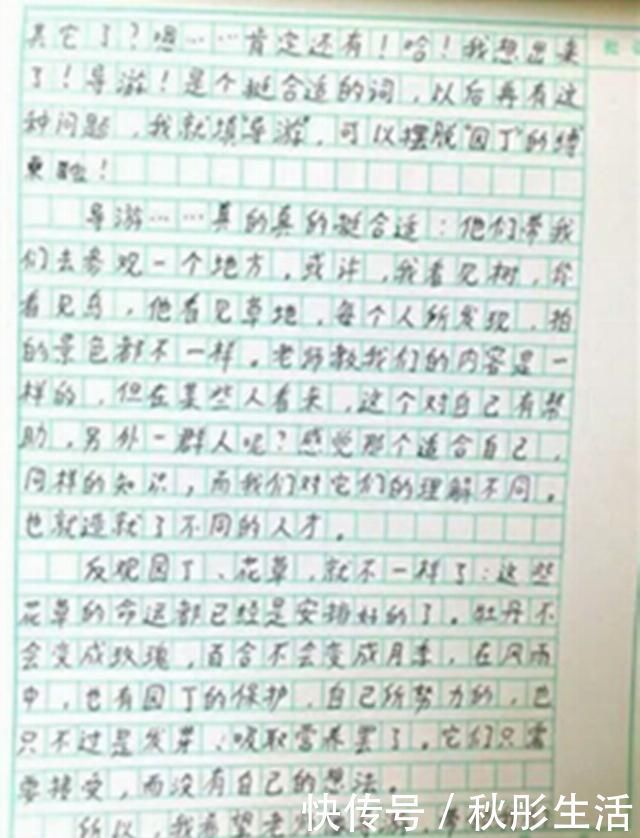 其它了？嗯……肯定还有！哈！我想出来
了！导游！是个挺合适的词，以后再有这
种问题，我就填“导游”，可以摆脱“园丁”的缚
束啦！
导游……真的真的挺合适：他们带我
们去参观一个地方，或许，我看见树，你
看见鸟，他看见草地，每个人所发现、拍
的景色都不一样。老师教我们的内容是一
样的，但在某些人看来，这个对自己有帮
助，另外一群人呢？感觉那个适合自己，
同样的知识，而我们对它们的理解不同。
也就造就了不同的人才。
反观园丁、花草，就不一样了：这些
花草的命运都已经是安排好的了。牡丹不
会变成玫瑰，百合不会变成月季，在风雨
中，也有园丁的保护，自己所努力的，也
只不过是发芽、吸取营养罢了。它们只需
要接受，而没有自己的想法。
所以，我希望老
快传号 / 秋彤生活